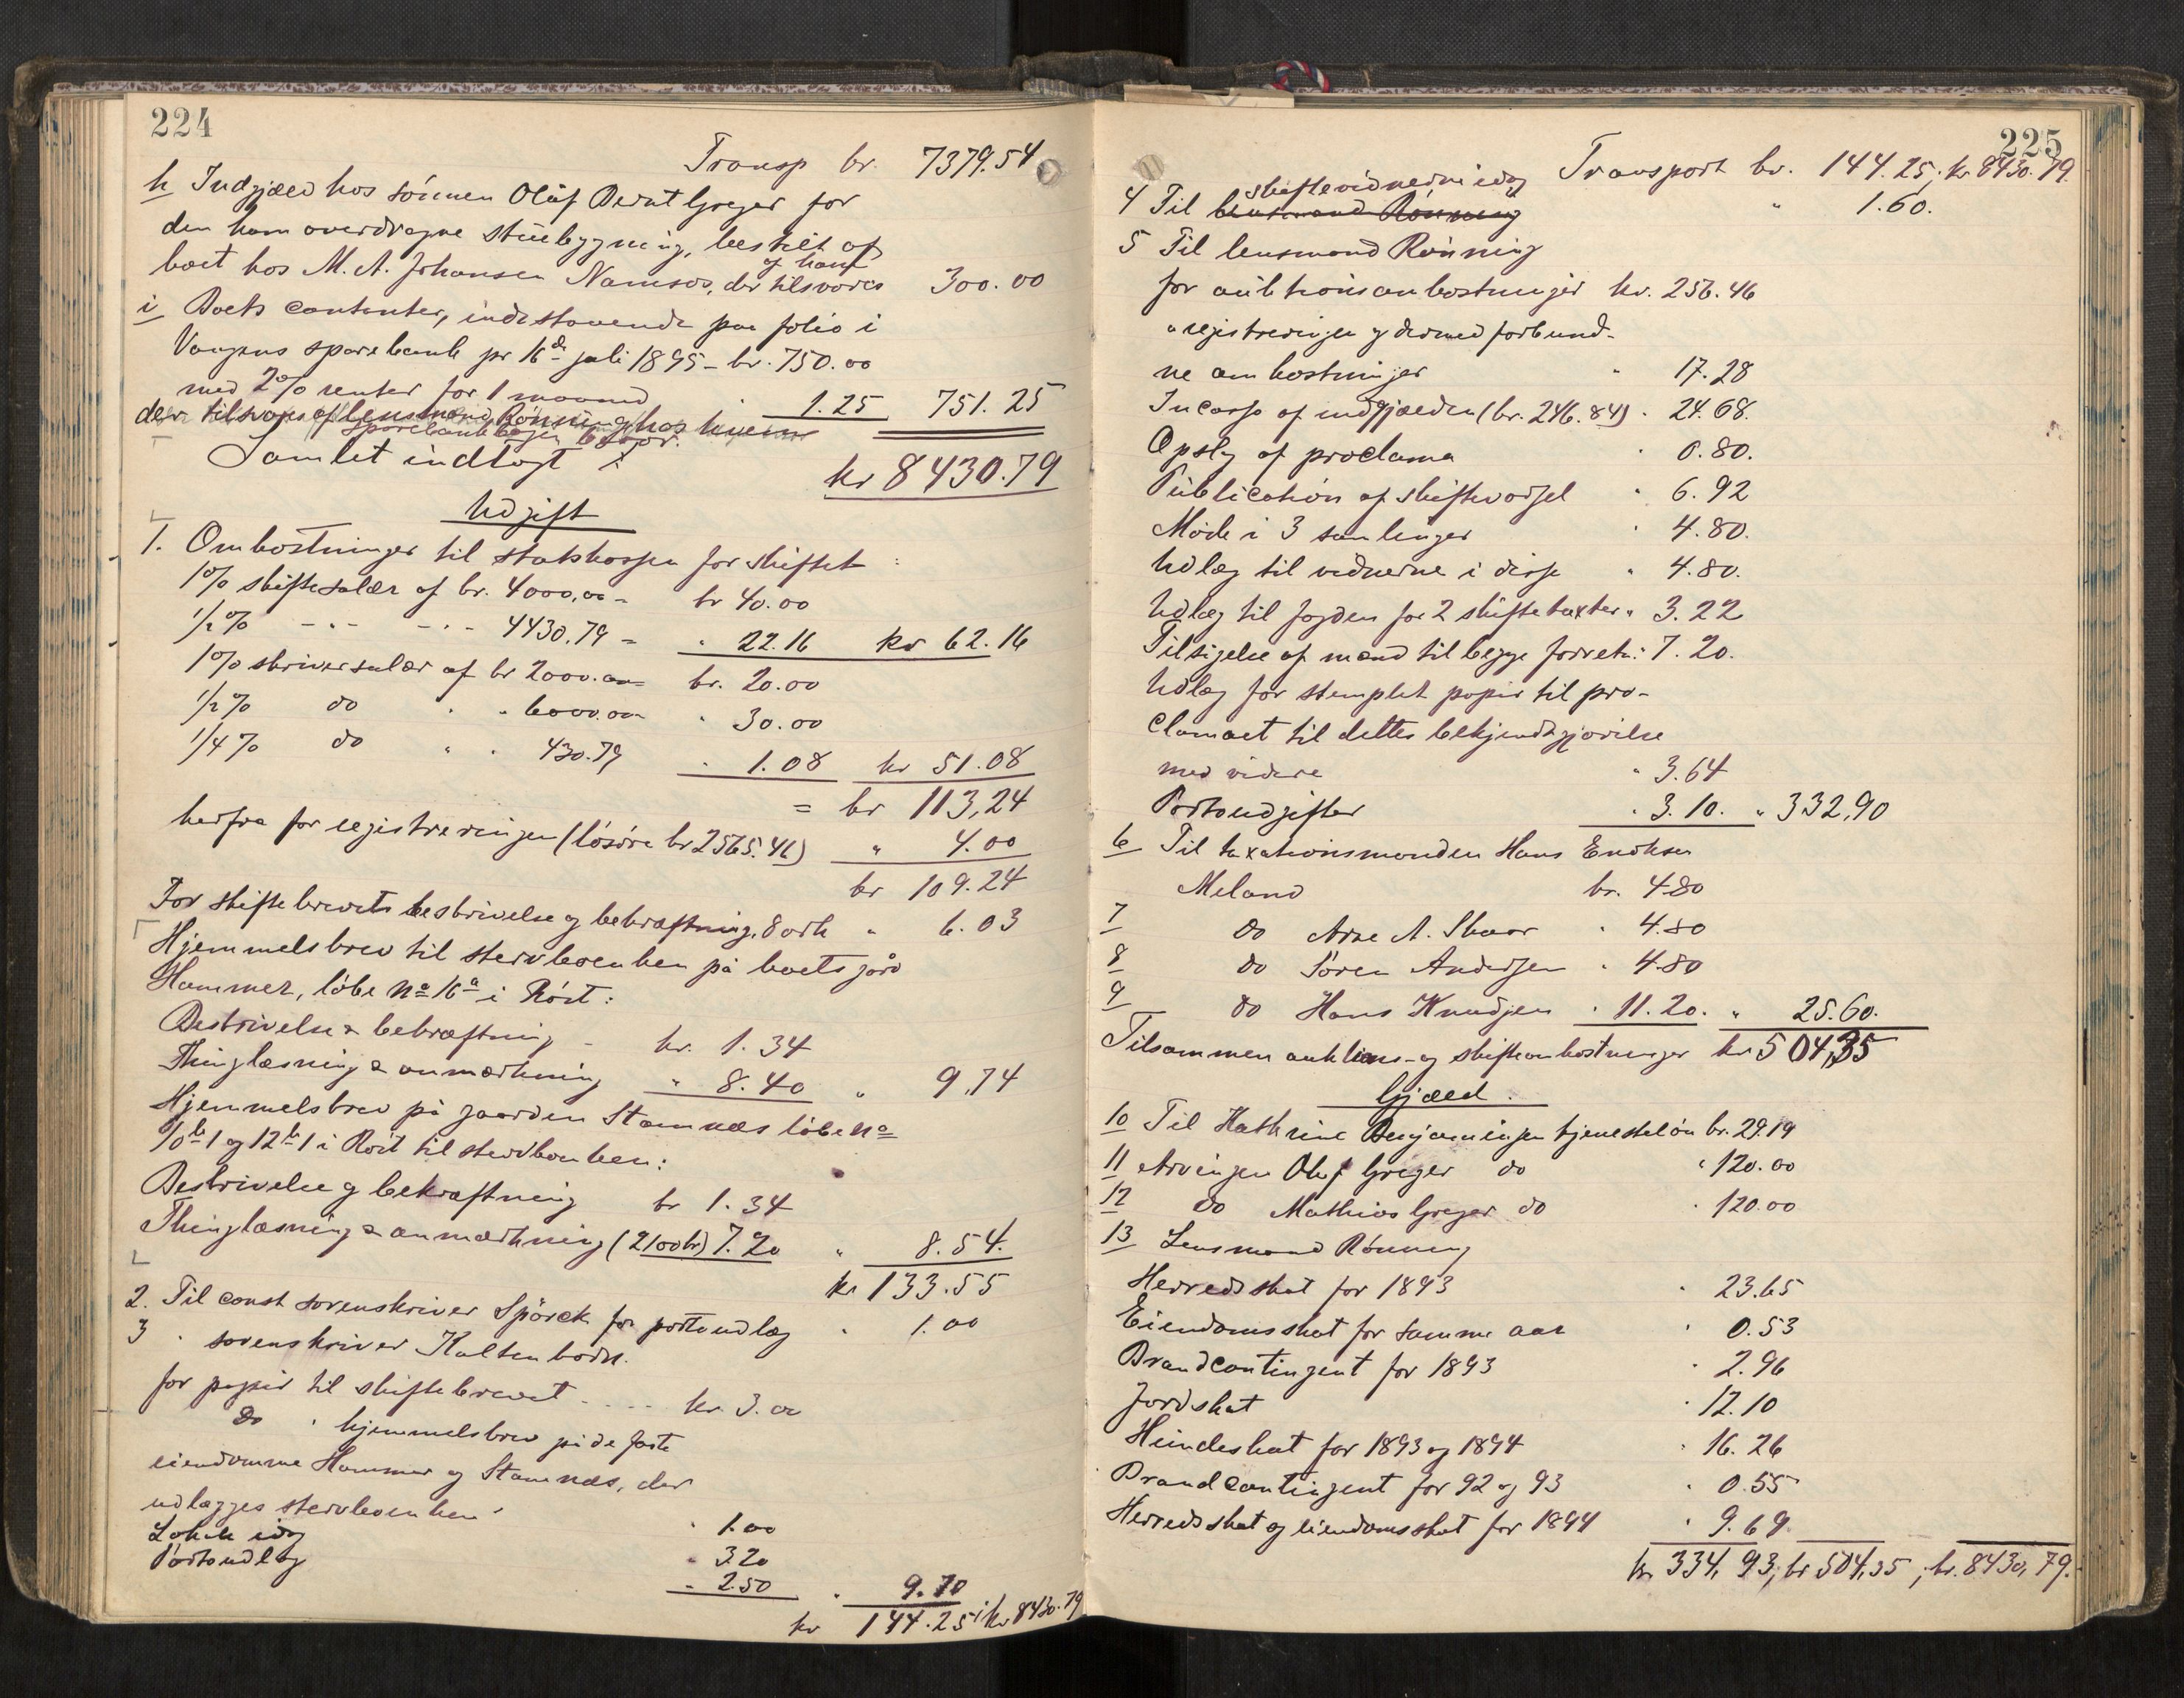 224
Transp kr. 7379.54
h Indgjæld hos sönnen Olaf Bernt Greger for
den ham overdragne stuebygning, bestilt af
boet hos M. A. Johansen Namsos, der tilsvares af ham 300.00
i Boets contanter, indestaaende paa folio i
Vangens sparebank pr 16de juli 1895 - kr. 750.00
med 2% renter for 1 maaned " 1.25 751.25
der tilsvares af lensmand Rönning hos hvem
sparebankbogen beror.
Samlet indtægt kr 8430.79
Udgift
1. Omkostninger til statskassen for skiftet:
1% skiftesalær af kr. 4000,00 = kr 40.00
1/2% -"- -"- 4430.79 = " 22.16 kr 62.16
1% skriversalær af kr 2000.00 = kr. 20.00
1/2% do " " 6000.00 " 30.00
1/4% do " " 430.79 " 1.08 kr 51.08
= kr 113,24
herfra for registreringen (lösöre kr 2565.46) " 4.00
kr 109.24
For skiftebrevets beskrivelse og bekræftning, 8 ark " 6.03
Hjemmelsbrev til stervboenken på boets jord
Hammer, löbe No 16a i Röst:
Beskrivelse & bekræftning - kr. 1.34
Thinglæsning & anmærkning " 8.40 " 9.74
Hjemmelsbrev på gaarden Stamnæs löbe No
10b1 og 12b1 i Röst til stervboenken:
Beskrivelse og bekræftning kr 1.34
Thinglæsning & anmærkning (2100 kr) 7.20 " 8.54.
kr 133.55
2. Til const sorenskriver Spörck for portoudlæg " 1.00
3 " sorenskriver Kaltenborn.
for papir til skiftebrevet .... kr. 3.00
Do " hjemmelsbrev på de faste
eiendomme Hammer og Stamnæs, der
udlægges stervboenken " 1.00
Lokale idag " 3.20
Portoudlæg " 2.50 " 9.70
kr 144.25; kr 8430.79
225
Transport kr. 144.25; kr 8430.79.
4 Til lensmand Rönning skiftevidnerne idag " 1.60.
5 Til lensmand Rönning
for auktionsomkostninger kr. 256.46
" registreringen og dermed forbund-
ne omkostninger " 17.28
Incasso af indgjælden (kr. 246.84) " 24.68.
Opslag af proclama " 0.80.
Publication af skiftevarsel " 6.92
Möde i 3 samlinger " 4.80.
Udlæg til vidnerne i disse " 4.80.
Udlæg til fogden for 2 skiftetaxter " 3.22
Tilsigelse af mænd til begge forretn: 7.20.
Udlæg for stemplet papir til pro-
clamaet til dettes bekjendtgjörelse
med videre " 3.64
Portoudgifter " 3.10. " 332,90
6 Til taxationsmanden Hans Enoksen
Meland kr. 4.80
7 do Arne A. Skaar " 4.80
8 do Sören Andersen " 4.80
9 do Hans Knudsen " 11.20. " 25.60.
Tilsammen auktions- og skifteomkostninger kr 504,35
Gjæld.
10 Til Kathrine Benjaminsen tjenestelön kr. 29.19
11 Arvingen Oluf Greger do " 120.00
12 do Mathias Greger do " 120.00
13 Lensmand Rönning
Herredsskat for 1893 " 23.65
Eiendomsskat for samme aar " 0.53
Brandcontingent for 1893 " 2.96
Jordskat " 12.10
Hundeskat for 1893 og 1894 " 16.26
Brandcontingent for 92 og 93 " 0.55
Herredsskat og eiendomsskat for 1894 " 9.69
kr 334,93; kr 504,35; kr. 8430,79.